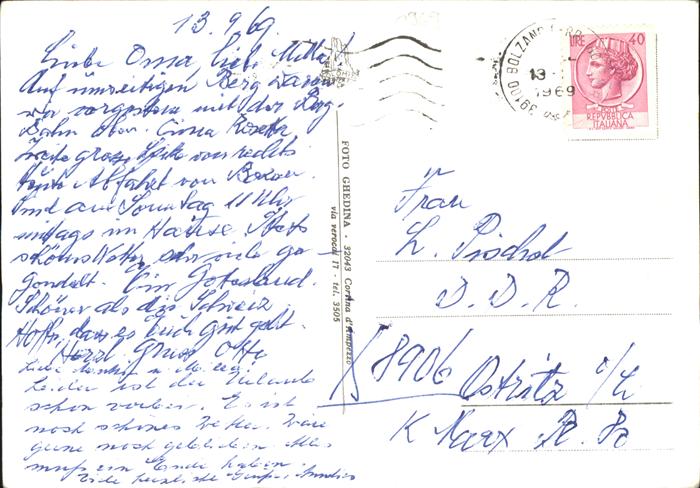 13.9.69
Liebe Oma, liebe Mutta!
Auf umseitigen Berg waren
wir vorgestern mit der Berg-
Bahn oben. Cima Rosetta
zweite grosse Spitze von rechts.
Heute Abfahrt von Bozen.
sind am Sonntag 11 Uhr
mittags im Hause. Stets
schönes Wetter, sehr viele ge-
gondelt. Ein Götterland.
Schöner als die Schweiz.
Hoffe, dass es Euch gut geht.
Herzl. Gruss Otto
Liebe
Leider ist der Urlaub
schon vorbei. Es ist
noch schönes Wetter. Wäre
gerne noch geblieben. Alles
muß ein Ende haben.
Viele herzliche Grüße
FOTO GHEDINA - 32043 Cortina d'Ampezzo
via verocai 17 - tel. 3505
1969
39100 BOLZANO
13
1969
LIRE 40
POSTE
REPVBBLICA
ITALIANA
Frau
L. Pischel
D. D. R.
8906 Ostritz o/L
K Marx